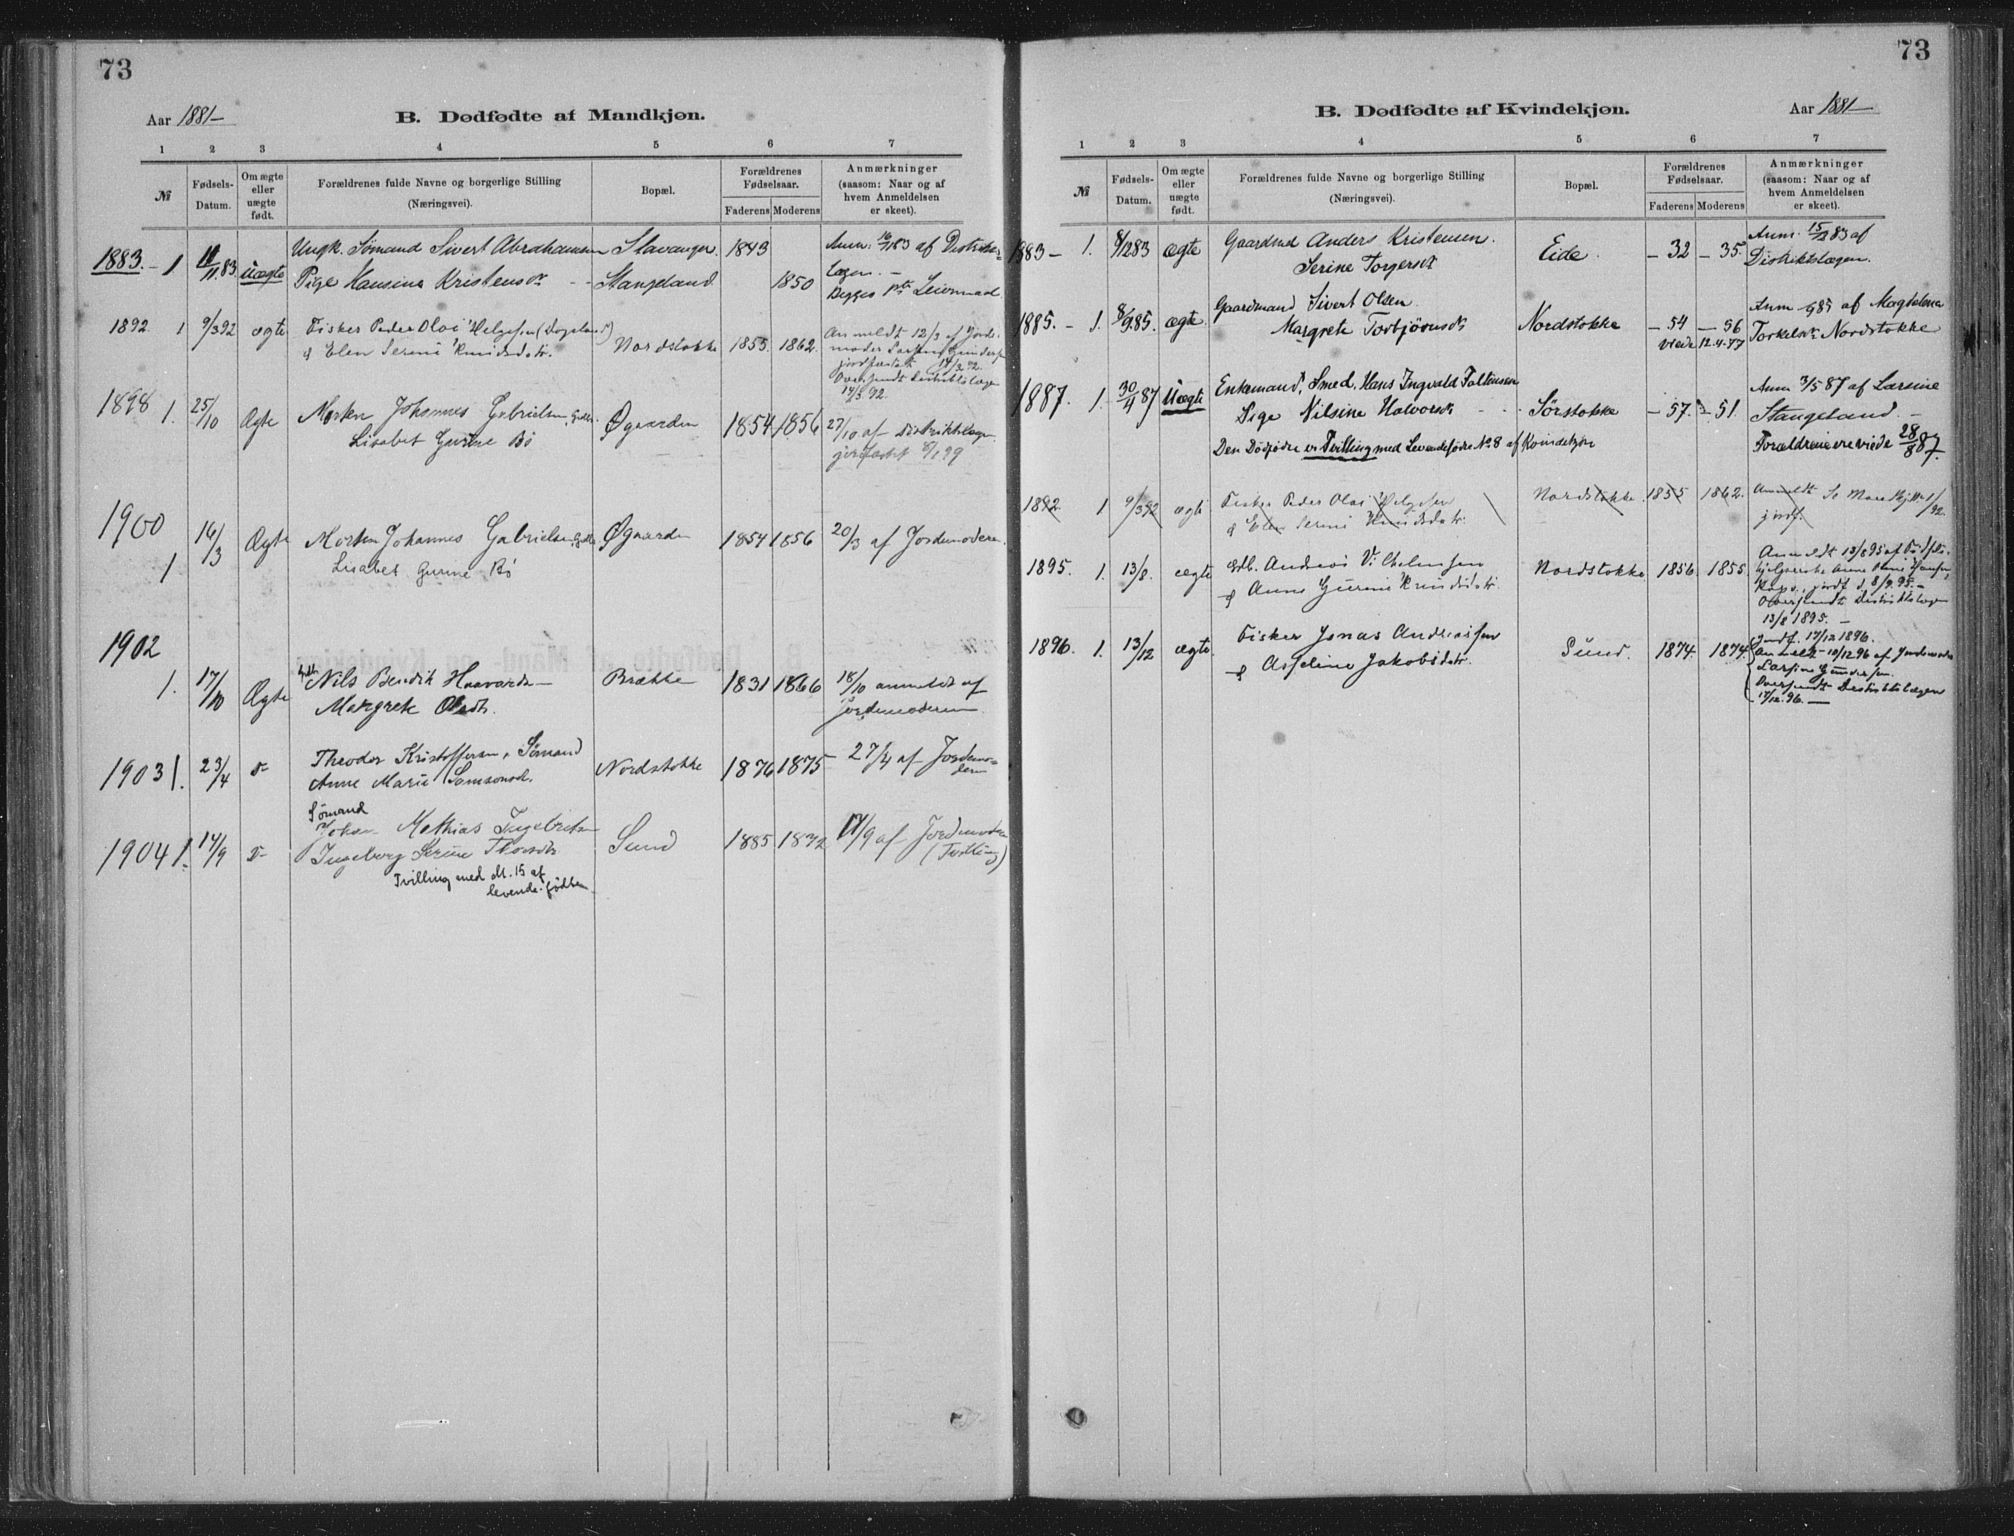 73
Aar 1881-
B. Dødfødte af Mandkjøn.
1 2 3 4 5 6 7
№
Fødsels-
Datum.
Om ægte
eller
uægte
født.
Forældrenes fulde Navne og borgerlige Stilling
(Næringsvei).
Bopæl.
Forældrenes
Fødselsaar.
Faderens Moderens
Anmærkninger
(saasom: Naar og af
hvem Anmeldelsen
er skeet).
1883. - 1 11/11.83 uægte Ungk. Sømand Sivert Abrahamsen Stavanger 1843
Pige Hansine Kristensdr - - Stangeland 1850
Begges 1ste Leiermaal
1892 1 9/3 92 ægte Fisker Peder Olai Helgesen
& Elen Serine Knudsdtr. Nordstokke 1855. 1862.
Anmeldt 12/3 af Jorde-
moder
Oversendt Distriktslægen
14/3 92.
1898 1. 25/10 Ægte Morten Johannes Gabrielsen, Gdbr.
Lisabet Gurine Bø
Øgaarden 1854 1856
27/10 af Distriktslægen
jordfæstet
1900
1 16/3 Ægte Morten Johannes Gabrielsen, Gdbr.
Lisabet Gurine Bø
Øgaarden 1854 1856 20/3 af Jordemoderen
1902
1. 17/10 Ægte Nils Bendik Haavards-
Margrete Olsdtr.
Brække 1831 1866 18/10 anmeldt af
Jordemoderen.
1903 1. 23/4 d- Theodor Kristoffersen, Sømand
Anne Marie Samsonsd.
Nordstokke 1876 1875 27/4 af Jordemo-
deren
1904 1. 14/9 d- Sømand
Johan Mathias Ingebretsen
Ingeborg Serine Thorsdtr
Sund 1885 1872 17/9 af Jordemoderen
(Tvilling)
Tvilling med № 15 af
levende-fødte
73
Aar 1881-
B. Dødfødte af Kvindekjøn.
1 2 3 4 5 6 7
№
Fødsels-
Datum.
Om ægte
eller
uægte
født.
Forældrenes fulde Navne og borgerlige Stilling
(Næringsvei).
Bopæl.
Forældrenes
Fødselsaar.
Faderens Moderens
Anmærkninger
(saasom: Naar og af
hvem Anmeldelsen
er skeet).
1883 - 1. 8/12 83 ægte Gaardmd Anders Kristensen.
Serine Torgersdr
Eide. - 32 - 35.
Anm. 15/12 83 af
Distriktslægen.
1885. - 1. 8/9.85. ægte Gaardmand Sivert Olsen.
Margrete Torbjørnsdr
Nordstokke - 54 - 56
viede 12.4.77
af Magdalena
Torkelsdr Nordstokke
1887. 1. 30/4 87 Uægte Enkemand, Smed, Hans Ingvald Faltinsen
Pige Nilsine Halvorsdr - - - Sørstokke - 57. - 51.
Anm 3/5 87 af Larsine
Stangeland. -
Den Dødfødte er Tvilling med Levendefødte № 8 af Kvindekjøn
Forældrene ere viede 28/8 87.
1892. 1 9/3 92 ægte Fisker Peder Olai Helgesen
& Elen Serine Knudsdatr.
Nordstokke 1855 1862.
Anmeldt Se Mandkj № 1/92.
jordf.
1895. 1. 13/8. ægte Gdb. Andreas Vilhelmsen
& Anne Gurine Knudsdtr.
Nordstokke 1856. 1855.
Anmeldt 13/8 95 af
Oversendt Distriktslægen
13/8 1895. -
1896. 1. 13/12 ægte. Fisker Jonas Andreassen
& Asseline Jakobsdtr.
Sund. 1874. 1874.
Jordf. 17/12 1896.
Anmeldt af Jordemoder
Larsine Gundersen.
Oversendt Distriktslægen
17/12.96. -